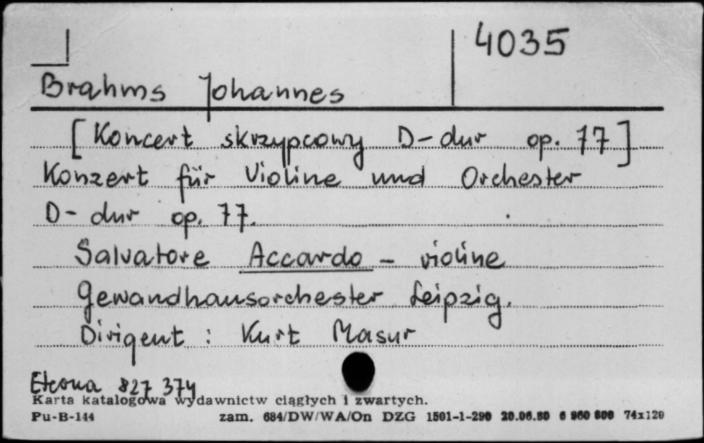 4035
Brahms Johannes
[Koncert skrzypcowy D-dur op. 77]
Konzert für Violine und Orchester
D-dur op. 77.
Salvatore Accardo - violine
Gewandhausorchester Leipzig.
Dirigent : Kurt Masur
Eterna 827 374
Karta katalogowa wydawnictw ciągłych i zwartych.
Pu-B-144 zam. 684/DW/WA/On DZG 1501-1-290 20.06.80 6 960 800 74x120